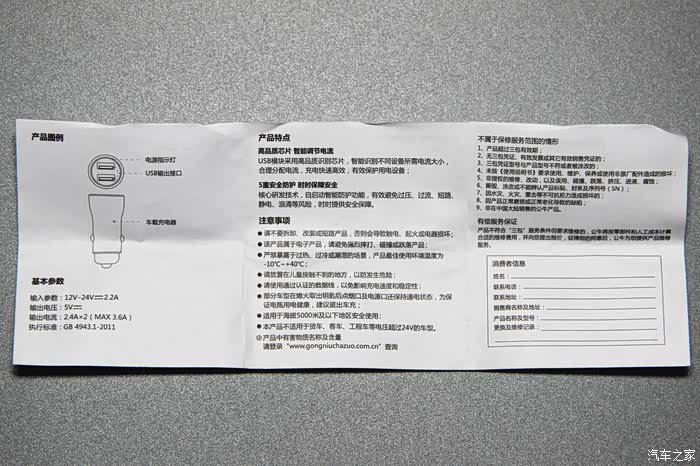 产品图例
电源指示灯
USB输出接口
车载充电器
基本参数
输入参数：12V-24V⎓2.2A
输出电压：5V⎓
输出电流：2.4A×2（MAX 3.6A）
执行标准：GB 4943.1-2011
产品特点
高品质芯片 智能调节电流
USB模块采用高品质识别芯片，智能识别不同设备所需电流大小，
合理分配电流，充电快速高效，有效保护用电设备；
5重安全防护 时时保障安全
核心研发技术，自启动智能防护功能，有效避免过压、过流、短路、
静电、浪涌等风险，时时提供安全保障。
注意事项
● 请不要拆卸、改装或短路产品，否则会导致触电、起火或电器损坏；
● 该产品属于电子产品，请避免猛烈摔打、碰撞或跌落产品；
● 严禁暴露于过热、过冷或潮湿的场景，产品最佳使用环境温度为
-10℃~+40℃；
● 请放置在儿童接触不到的地方，以防发生危险；
● 请使用通过认证的数据线，以免影响充电速度和稳定性；
● 部分车型在熄火取出钥匙后点烟口及电源口还保持通电状态，为保
证电瓶用电健康，建议拔出车充；
● 适用于海拔5000米及以下地区安全使用；
● 本产品不适用于货车、客车、工程车等电压超过24V的车型。
产品中有害物质名称及含量
请登录“www.gongniuchazuo.com.cn”查询
不属于保修服务范围的情形
1、产品超过三包有效期；
2、无三包凭证、有效发票或其它有效销售凭证的；
3、三包凭证型号与产品型号不符或者被涂改的；
4、未按《使用说明书》要求使用、维护、保养或使用非原厂配件造成的损坏；
5、非授权的维修、改动，以及误用、碰撞、跌落、挤压、进液、腐蚀；
6、撕毁、涂改或不能辨认产品标贴、封条及序列号（SN）；
7、因水灾、火灾、雷击等不可抗力造成损坏的；
8、因产品正常磨损或正常老化导致的缺陷；
9、非在中国大陆销售的公牛产品。
有偿保障服务
产品不符合“三包”服务条件但要求维修的，公牛将故障部件和人工成本计算
合适的维修费用，并向您提出报价，征得您的同意后，公牛为您提供产品维修
服务。
消费者信息
姓名：
联系电话：
联系地址：
销售商名称或地址：
产品名称及型号：
更换及维修记录：
汽车之家